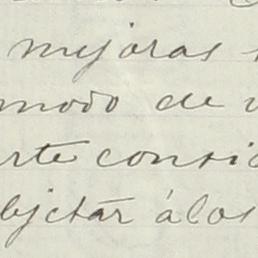 mejoras
modo de
rte consi
bjctár álos